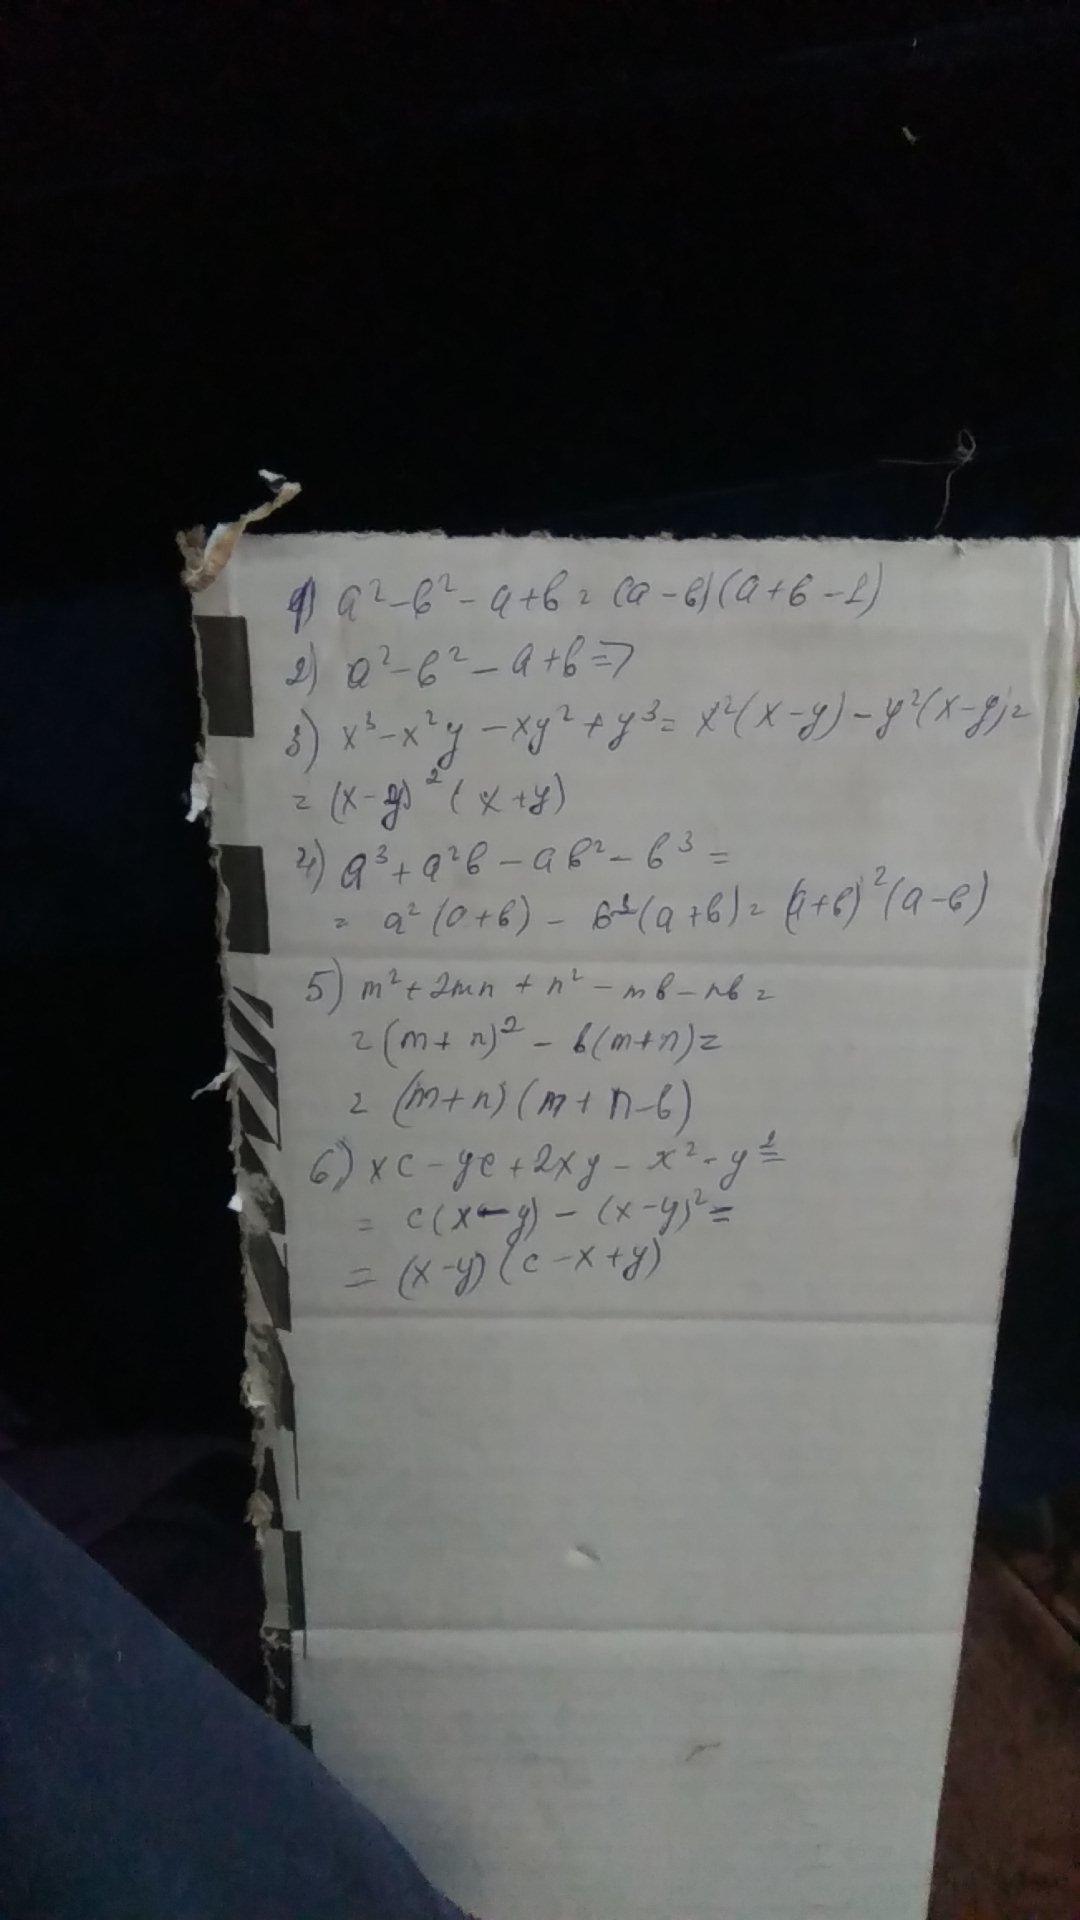 1) a²-b²-a+b=(a-b)(a+b-1)
2) a²-b²-a+b=>
3) x³-x²y-xy²+y³=x²(x-y)-y²(x-y)=
=(x-y)²(x+y)
4) a³+a²b-ab²-b³=
=a²(a+b)-b²(a+b)=(a+b)²(a-b)
5) m²+2mn+n²-mb-nb=
=(m+n)²-b(m+n)=
=(m+n)(m+n-b)
6) xc-yc+2xy-x²-y²=
=c(x-y)-(x-y)²=
=(x-y)(c-x+y)